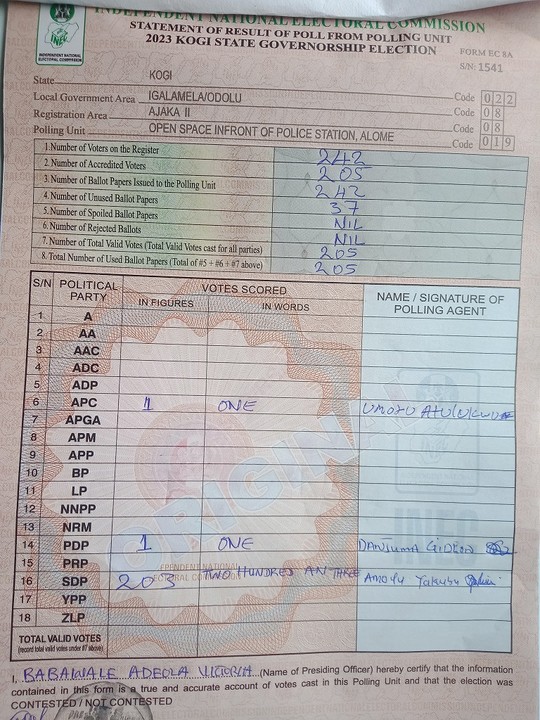 INDEPENDENT NATIONAL ELECTORAL COMMISSION
STATEMENT OF RESULT OF POLL FROM POLLING UNIT
2023 KOGI STATE GOVERNORSHIP ELECTION
INEC
INDEPENDENT NATIONAL ELECTORAL COMMISSION
FORM EC 8A
S/N: 1541
State KOGI
Local Government Area IGALAMELA/ODOLU Code 022
Registration Area AJAKA II Code 08
Code 08
Polling Unit OPEN SPACE INFRONT OF POLICE STATION, ALOME Code 019
1.Number of Voters on the Register 242
2. Number of Accredited Voters 205
3. Number of Ballot Papers Issued to the Polling Unit 242
4. Number of Unused Ballot Papers 37
5. Number of Spoiled Ballot Papers NIL
6. Number of Rejected Ballots NIL
7. Number of Total Valid Votes (Total Valid Votes cast for all parties) 205
8. Total Number of Used Ballot Papers (Total of #5 + #6 + #7 above) 205
S/N POLITICAL PARTY VOTES SCORED NAME / SIGNATURE OF POLLING AGENT
IN FIGURES IN WORDS
1 A
2 AA
3 AAC
4 ADC
5 ADP
6 APC 1 ONE
7 APGA
8 APM
9 APP
10 BP
11 LP
12 NNPP
13 NRM
14 PDP 1 ONE DANJUMA GIDEON
15 PRP
16 SDP 203 TWO HUNDRED AN THREE AMODU Yakubu
17 YPP
18 ZLP
TOTAL VALID VOTES
(record total valid votes under #7 above)
ORIGINAL
I, BABAWALE ADEOLA VICTORIA (Name of Presiding Officer) hereby certify that the information
contained in this form is a true and accurate account of votes cast in this Polling Unit and that the election was
CONTESTED / NOT CONTESTED